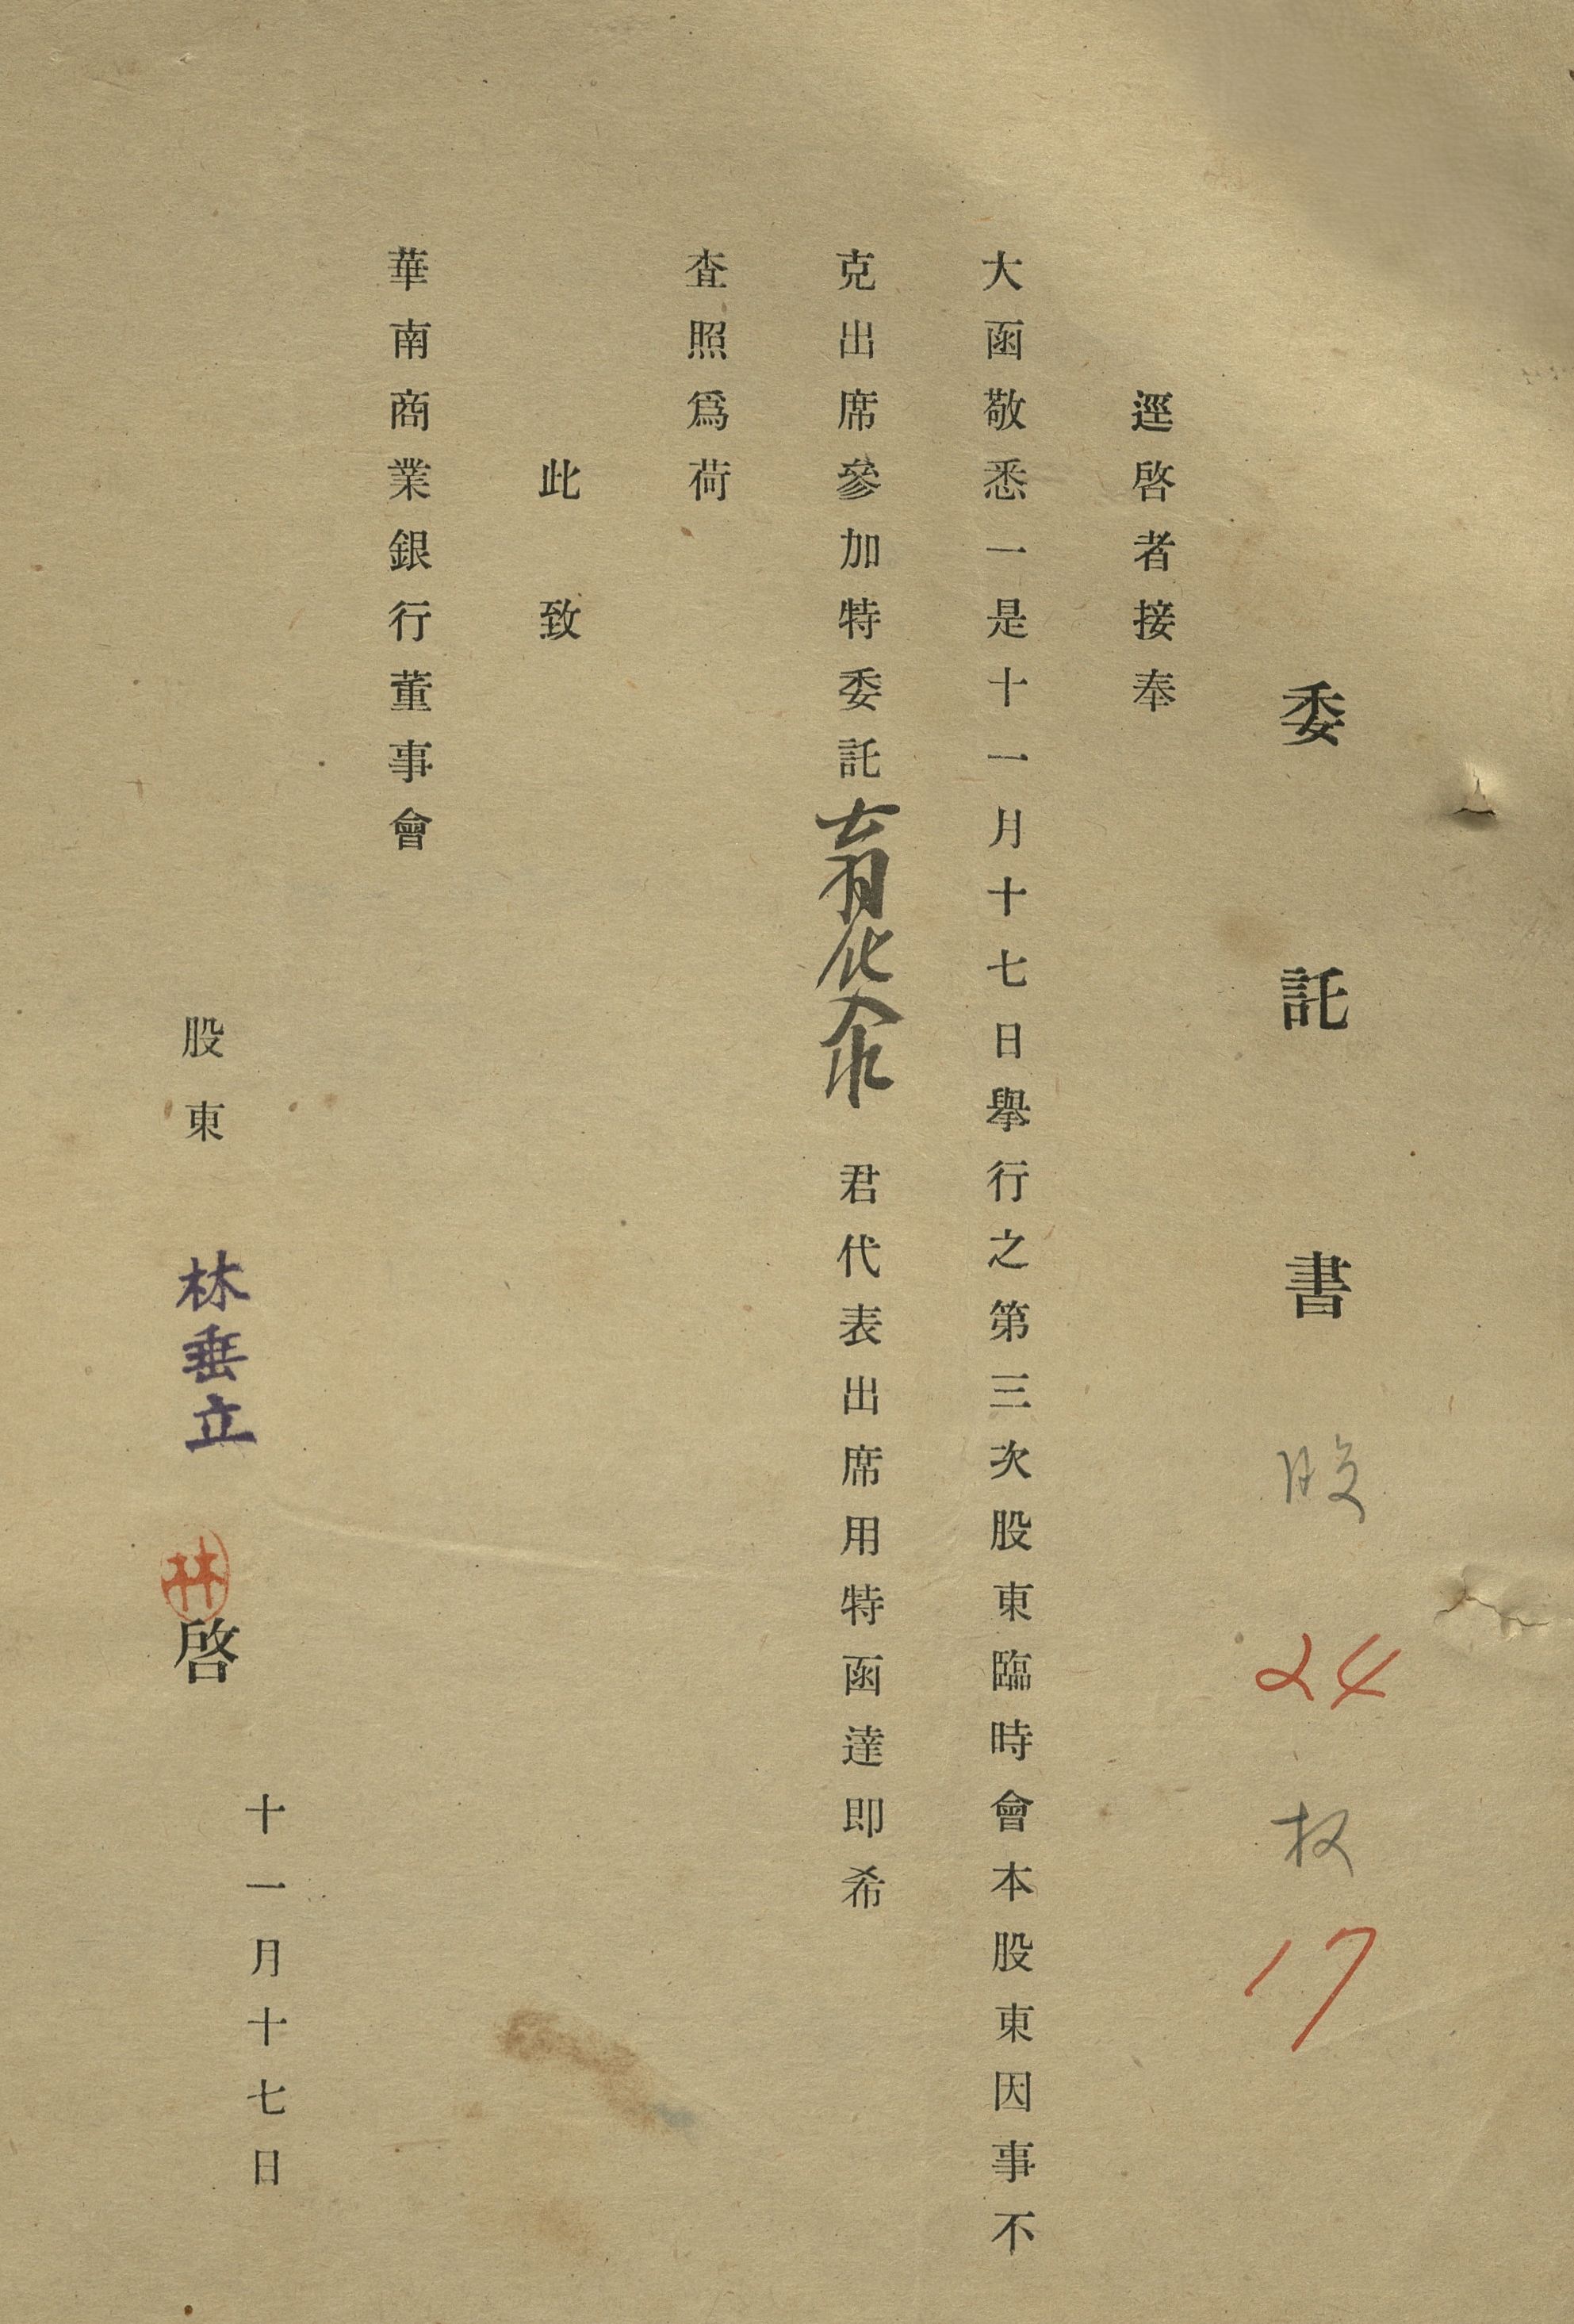 委託書 股 24 权 17
逕啓者接奉
大函敬悉一是十一月十七日舉行之第三次股東臨時會本股東因事不
克出席參加特委託育化会 君代表出席用特函達即希
查照爲荷
此致
華南商業銀行董事會
十一月十七日
股東 林垂立 林 啓